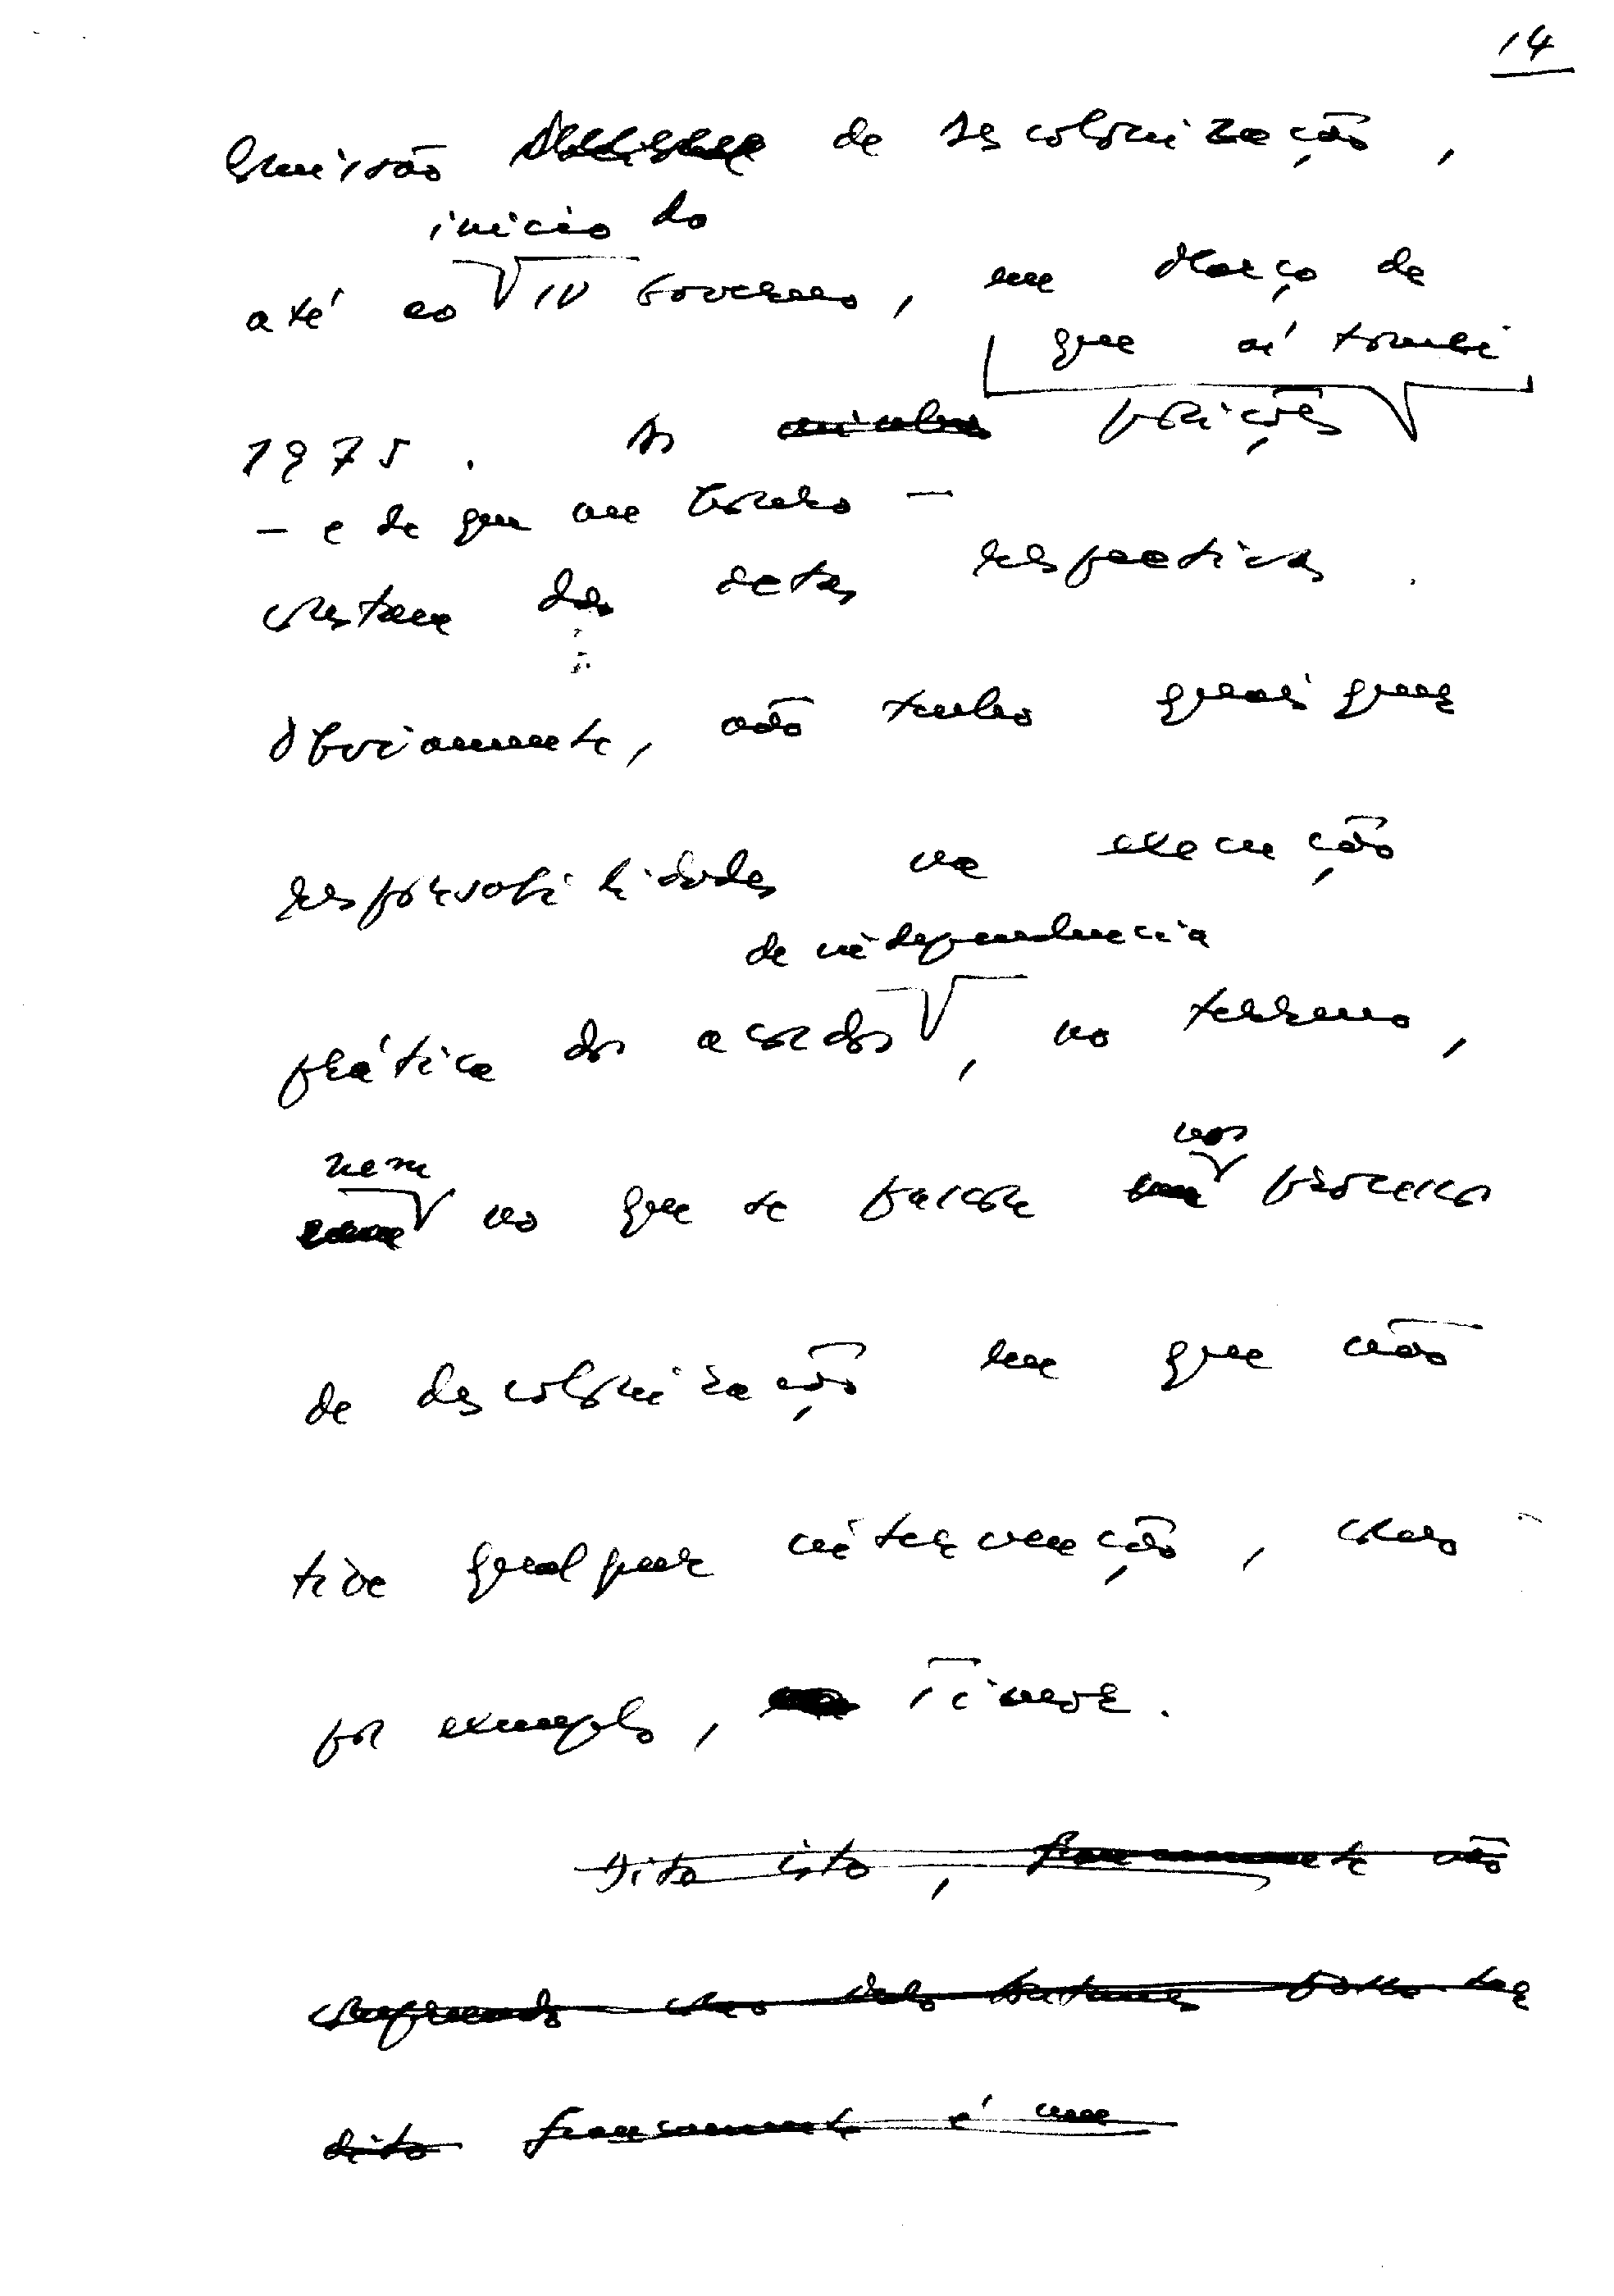 14
Comissão de descolonização,
início do
até ao IV Governo, em Março de
que aí tomei
1975. As minhas posições
– e de que me honro –
constam das actas respectivas.
Obviamente, não tenho quaisquer
responsabilidades na execução
de independência
prática dos acordos, no terreno,
nem nos
no que se passou processos
de descolonização em que não
tive qualquer intervenção, como
por exemplo, Timor.
Dito isto, francamente não
dito francamente é uma